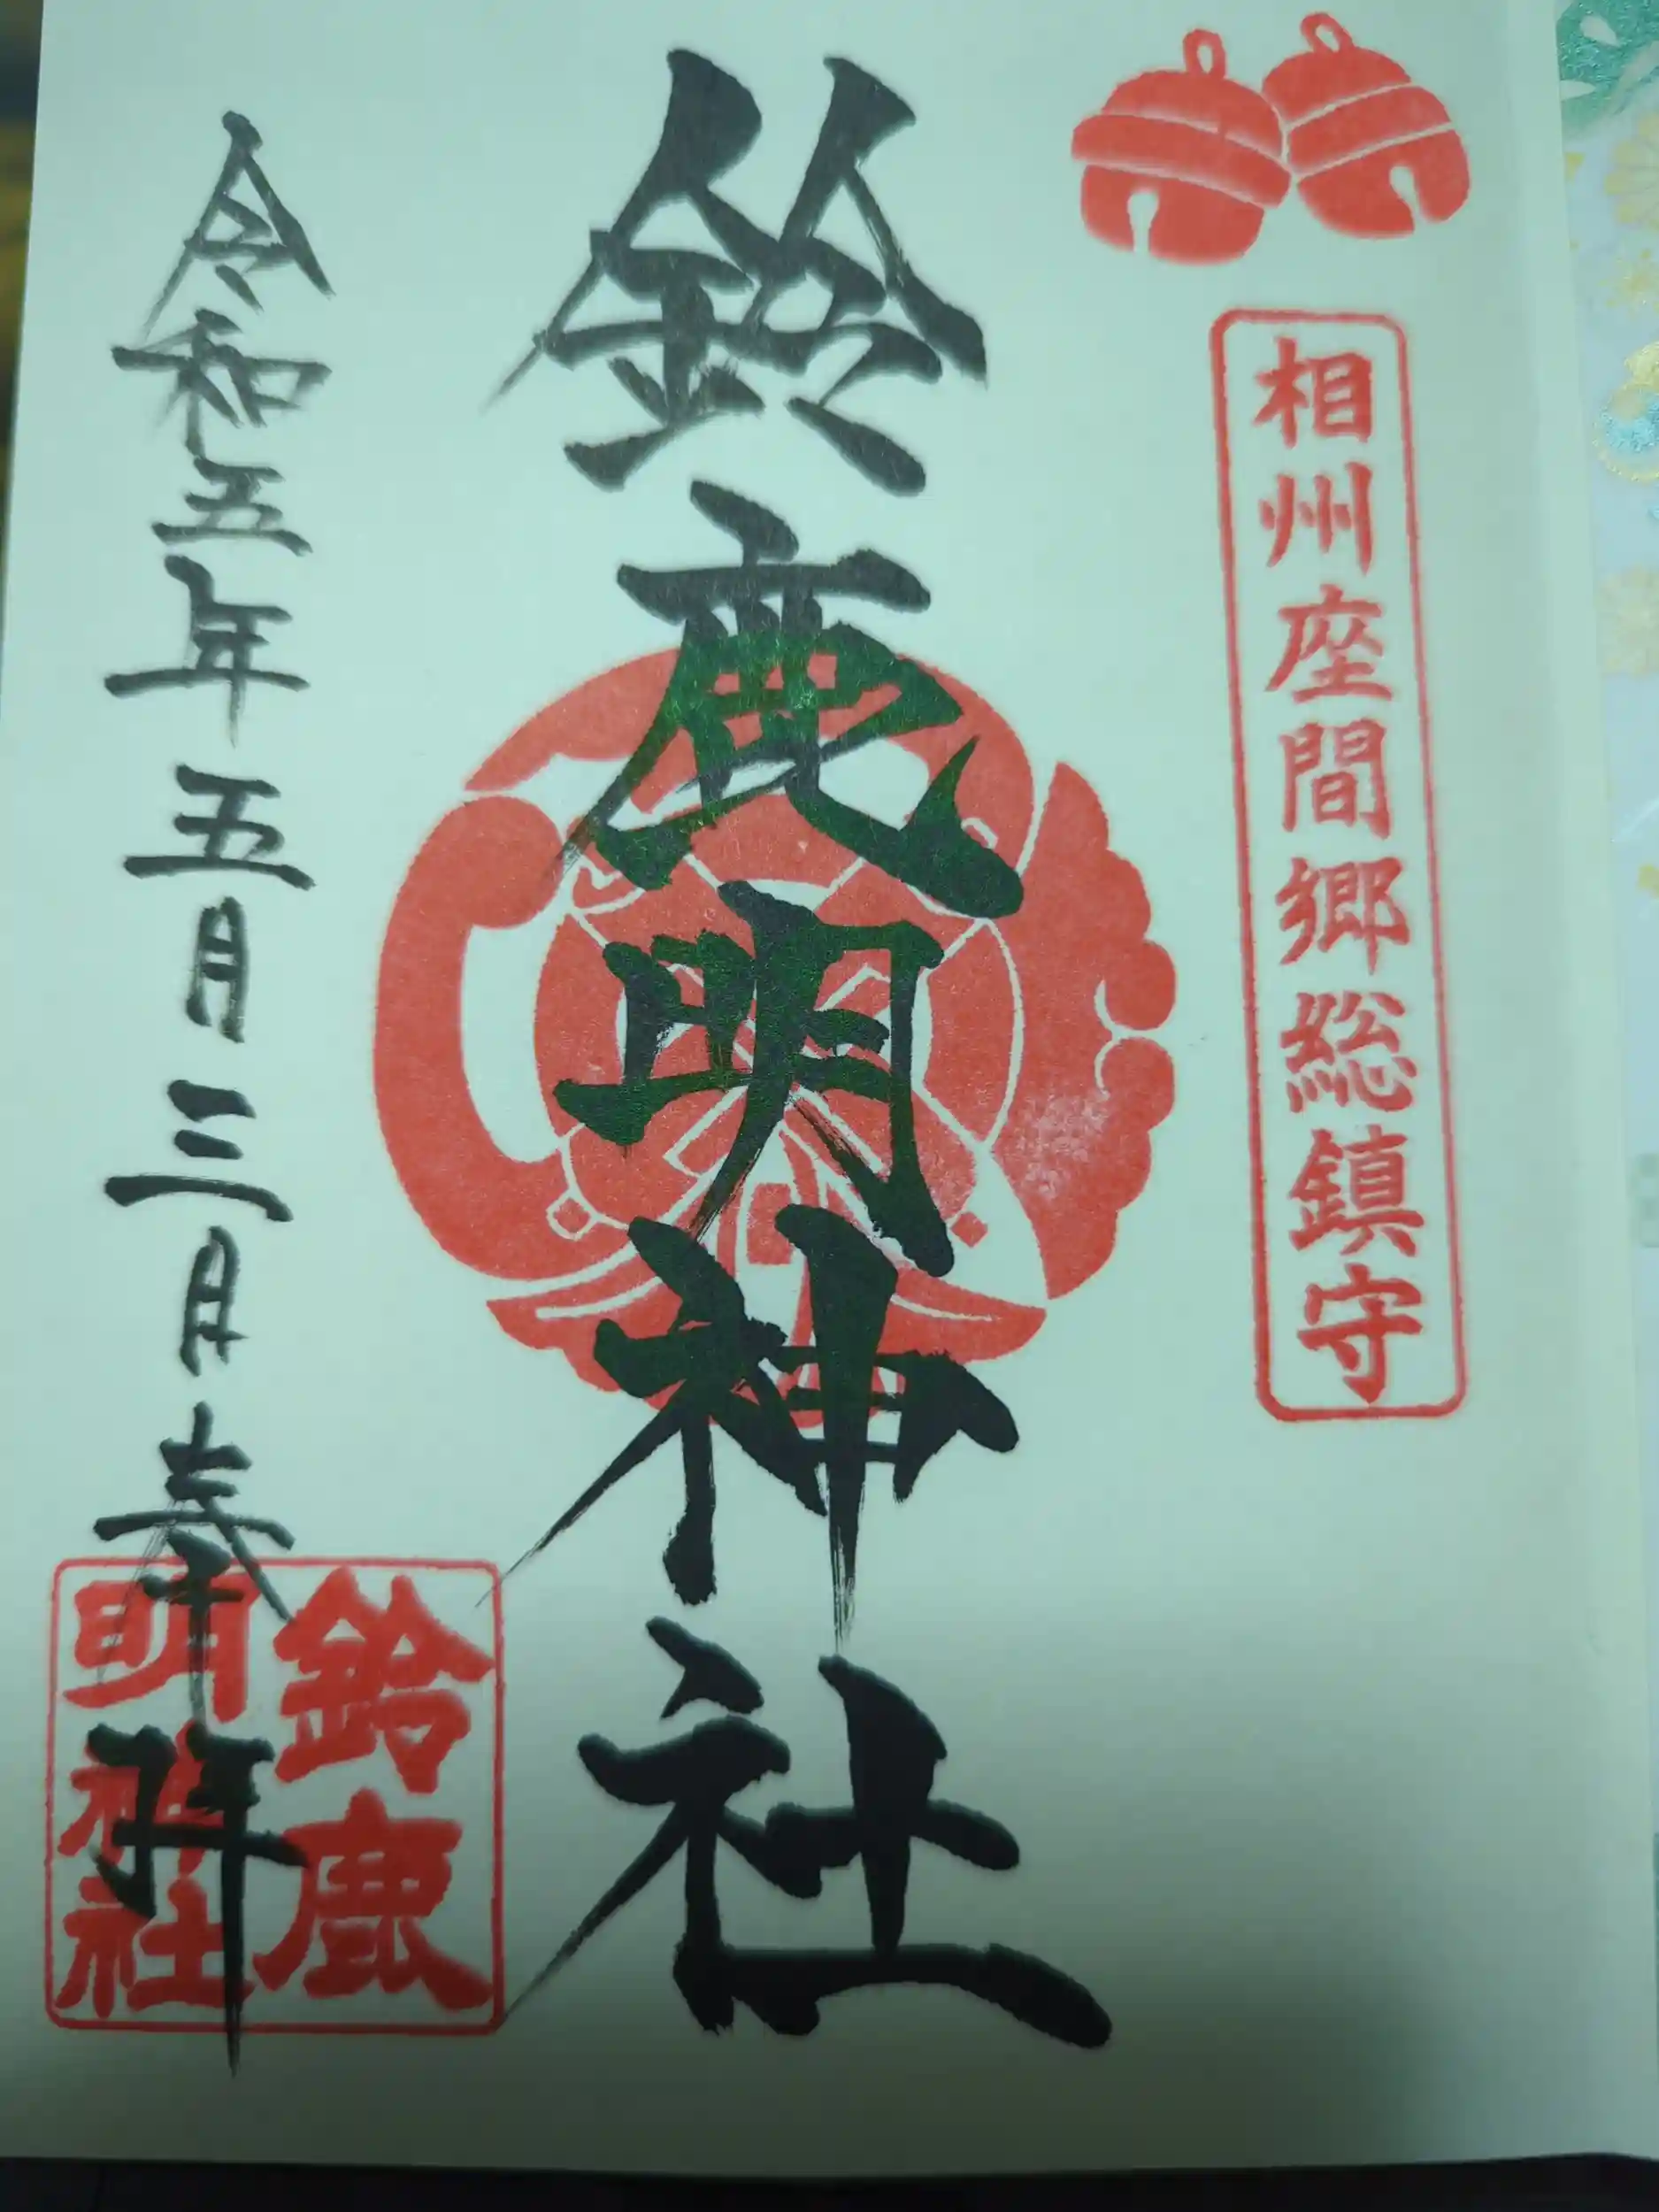 相州座間郷総鎮守
鈴鹿明神社
令和五年五月三日 奉拝
鈴鹿
明神社